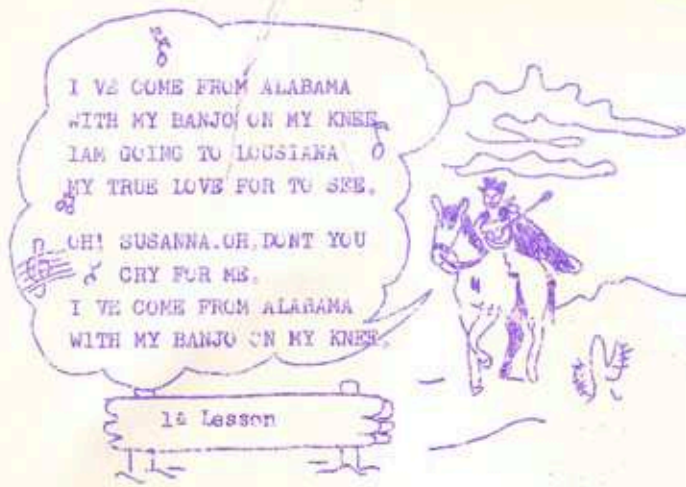 I VE COME FROM ALABAMA
WITH MY BANJO ON MY KNEE
IAM GOING TO LOUSIANA
MY TRUE LOVE FOR TO SEE.
OH! SUSANNA.OH,DONT YOU
CRY FOR ME.
I VE COME FROM ALABAMA
WITH MY BANJO ON MY KNEE.
1ª Lesson